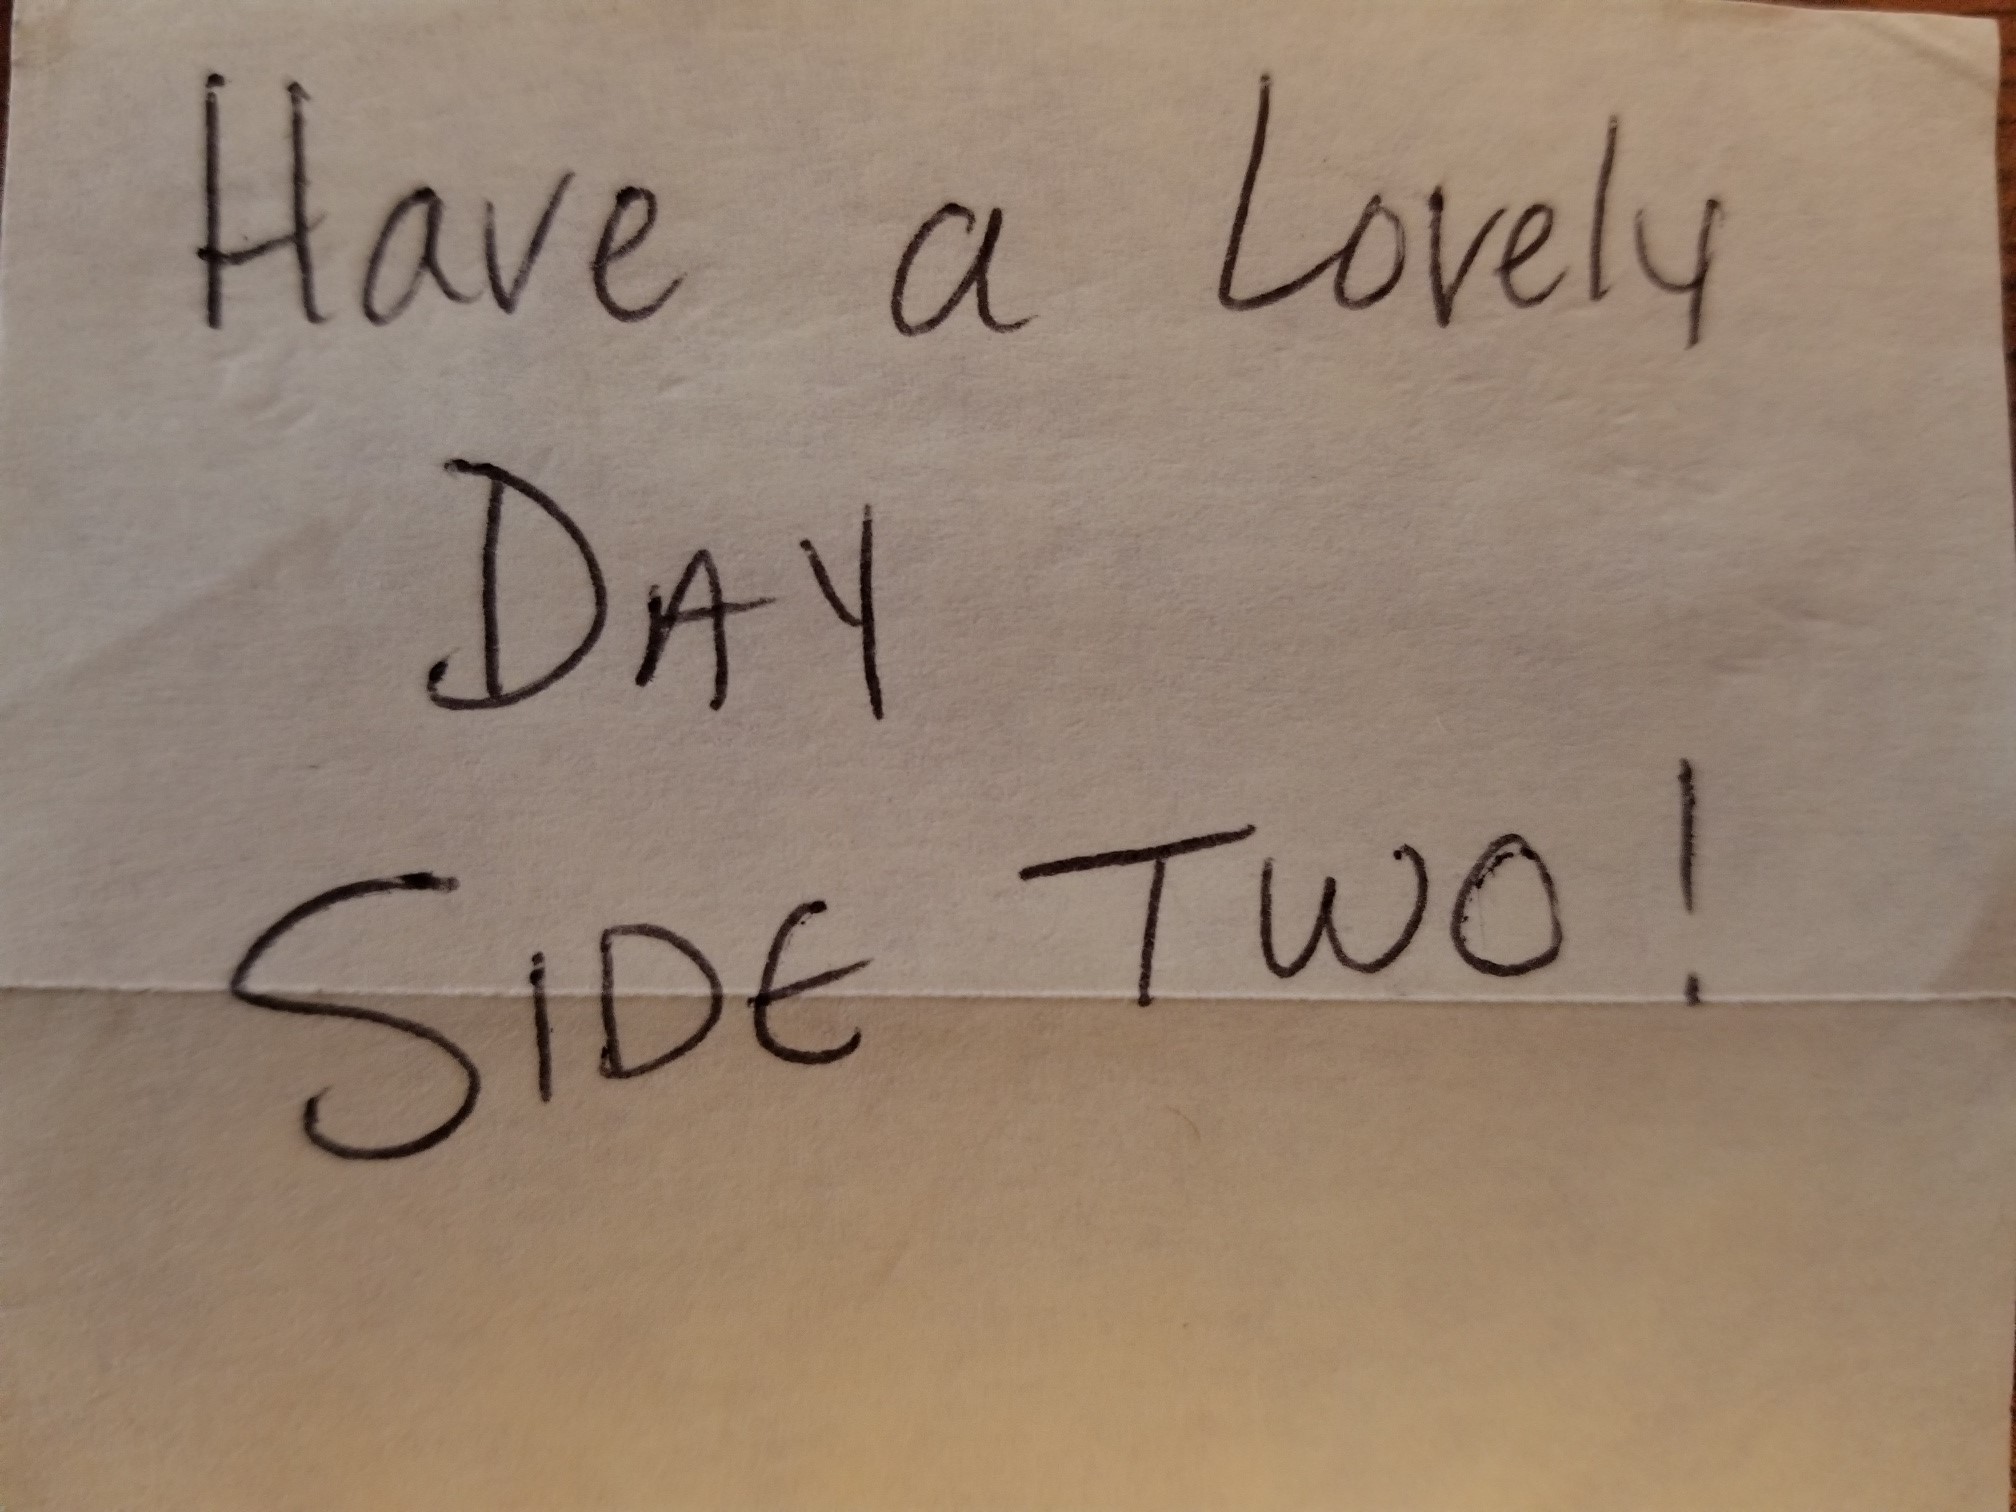 Have a Lovely
DAY
SIDE TWO!